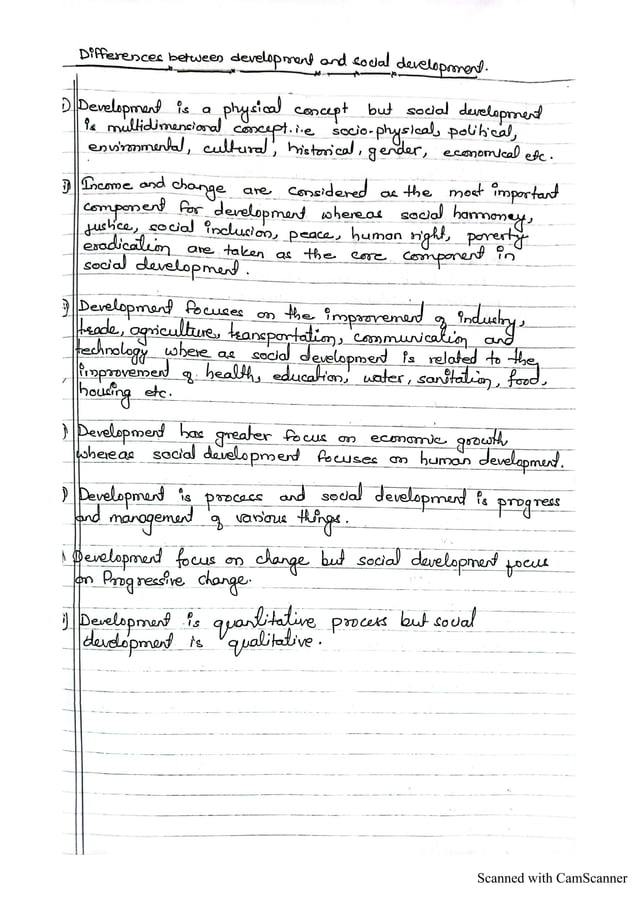 Differences between development and social development.
i) Development is a physical concept but social development
is multidimensional concept. i.e socio-physical, political,
environmental, cultural, historical, gender, economical etc.
ii) Income and change are considered as the most important
component for development whereas social harmoney,
justice, social inclusion, peace, human right, poverty
eradication are taken as the core component in
social development.
) Development focuses on the improvement of industry,
trade, agriculture, transportation, communication and
technology where as social development is related to the
improvement of health, education, water, sanitation, food,
housing etc.
) Development has greater focus on economic growth
whereas social development focuses on human development.
) Development is process and social development is progress
and management of various things.
Development focus on change but social development focus
on Progressive change.
i) Development is quantitative process but social
development is qualitative.
Scanned with CamScanner